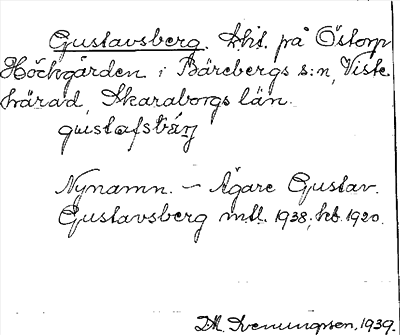 Gustavsberg. lht. på Östorp
Höökgården i Bärebergs s:n, Viste
härad, Skaraborgs län.
gustafsbärj
Nynamn. – Ägare Gustav.
Gustavsberg mtl. 1938, hb. 1920.
Sveningsson, 1939.